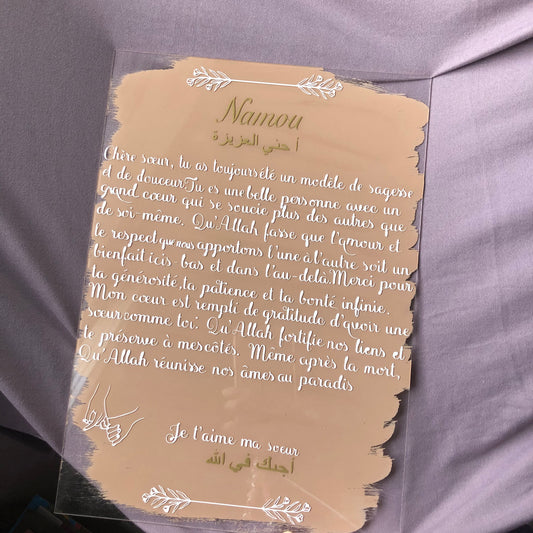 Namou
أ حني العزيزة
Chère sœur, tu as toujours été un modèle de sagesse
et de douceur.Tu es une belle personne avec un
grand cœur qui se soucie plus des autres que
de soi-même. Qu'Allah fasse que l'amour et
le respect que nous apportons l'une à l'autre soit un
bienfait ici-bas et dans l'au-delà.Merci pour
ta générosité, ta patience et ta bonté infinie.
Mon cœur est rempli de gratitude d'avoir une
sœur comme toi. Qu'Allah fortifie nos liens et
te préserve à mes côtés. Même après la mort,
Qu'Allah réunisse nos âmes au paradis
Je t'aime ma sœur
أحبك في الله